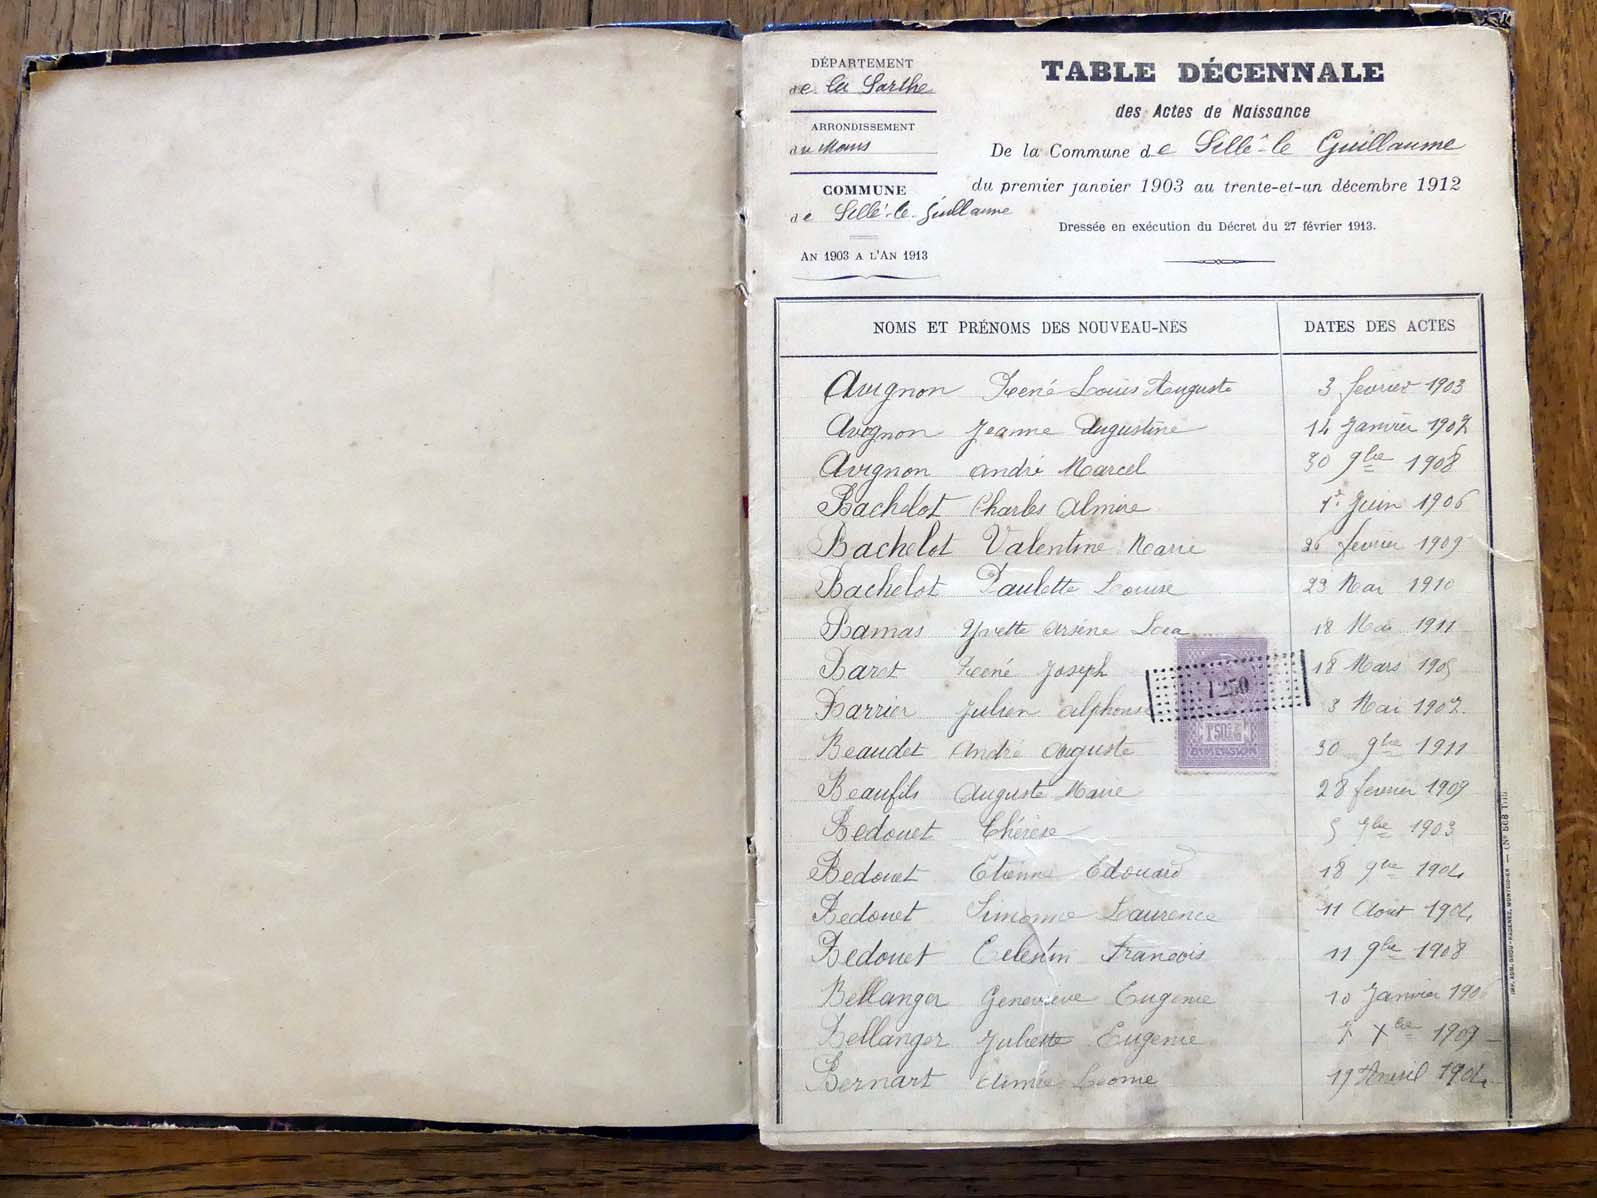 DÉPARTEMENT
de la Sarthe
ARRONDISSEMENT
du Mans
COMMUNE
de Sillé-le-Guillaume
AN 1903 A L'AN 1913
TABLE DÉCENNALE
des Actes de Naissance
De la Commune de Sillé-le Guillaume
du premier janvier 1903 au trente-et-un décembre 1912
Dressée en exécution du Décret du 27 février 1913.
NOMS ET PRÉNOMS DES NOUVEAU-NÉS DATES DES ACTES
Avignon René Louis Auguste 3 février 1903
Avignon Jeanne Augustine 14 Janvier 1907
Avignon André Marcel 30 9bre 1908
Bachelot Charles Almire 1er Juin 1906
Bachelot Valentine Marie 26 février 1909
Bachelot Paulette Louise 23 Mai 1910
Bamas Yvette Arsène 18 Mai 1911
Baret René Joseph 18 Mars 1905
Barrier Julien Alphonse 3 Mai 1907
Beaudet André Auguste 30 9bre 1911
Beaufils Auguste Marie 28 février 1909
Bedouet Thérèse 5 7bre 1903
Bedouet Etienne Edouard 18 9bre 1904
Bedouet Simonne Laurence 11 Août 1904
Bedouet Celestin Francois 11 9bre 1908
Bellanger Geneviève Eugenie 10 Janvier 1906
Bellanger Juliette Eugenie 7 Xbre 1909
Bernart Aimée Léonie 17 Avril 1904
1250
1F50
DIMENSION